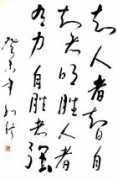 知人者智自
知者明胜人者
有力自胜者强
癸未年